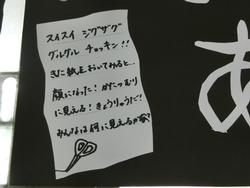 スイスイ ジグザグ
グルグル チョッキン!!
きった紙をおいてみると…
顔になった！かたつむり
に見える！きょうりゅうだ！
みんなは何に見えるかな？
あ